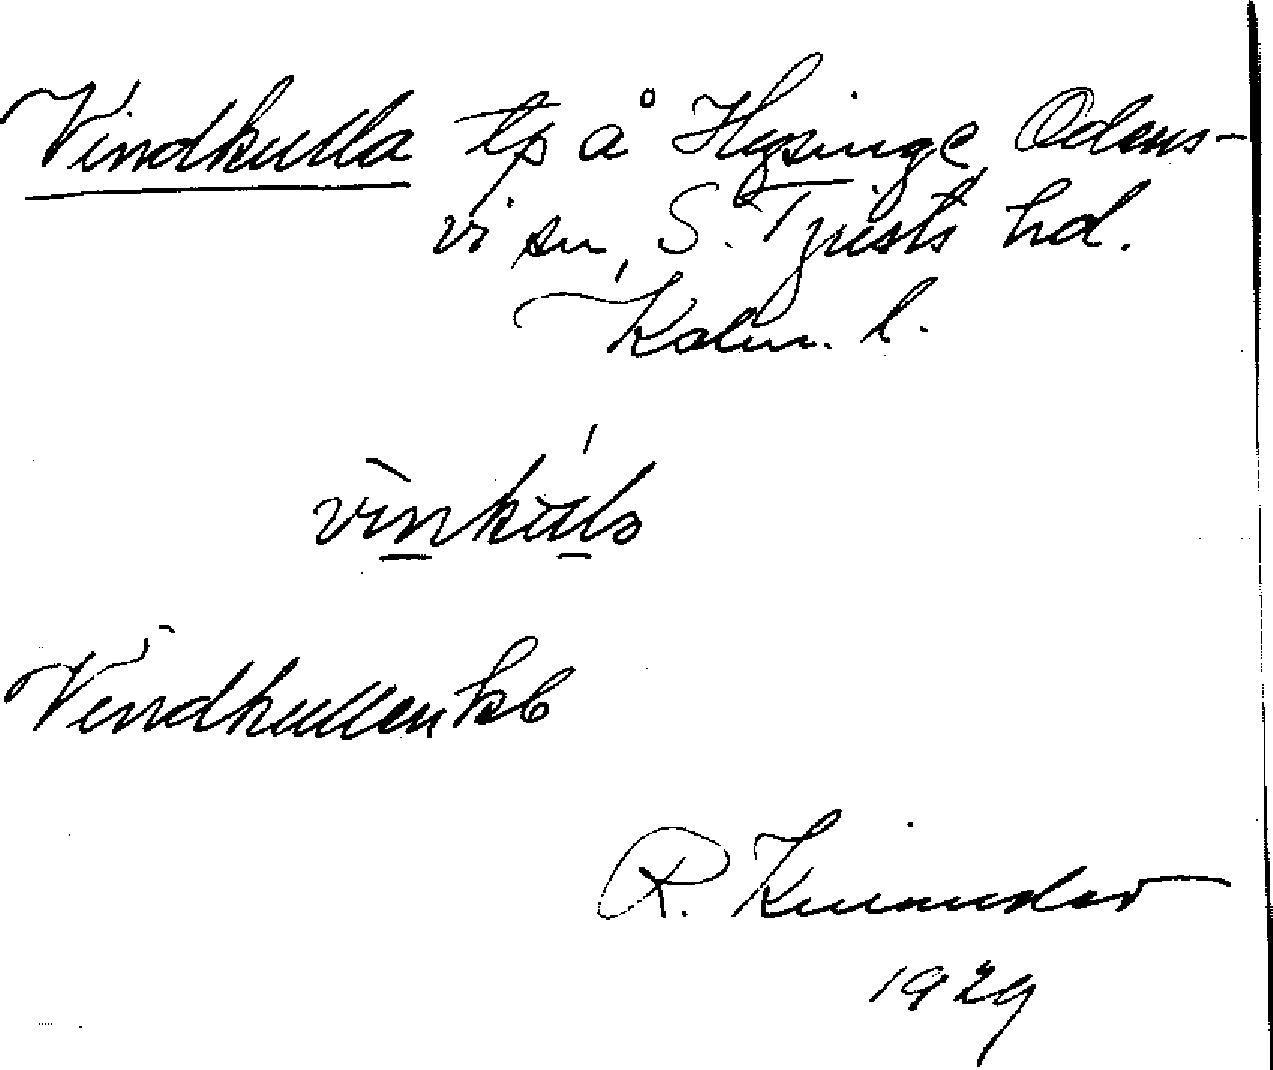 Vindkulla tp å Hysinge, Odens-
vi sn, S. Tjusts hd.
Kalm. l.
vìnkúlα
Vindkullen kb
R. Kinander
1929